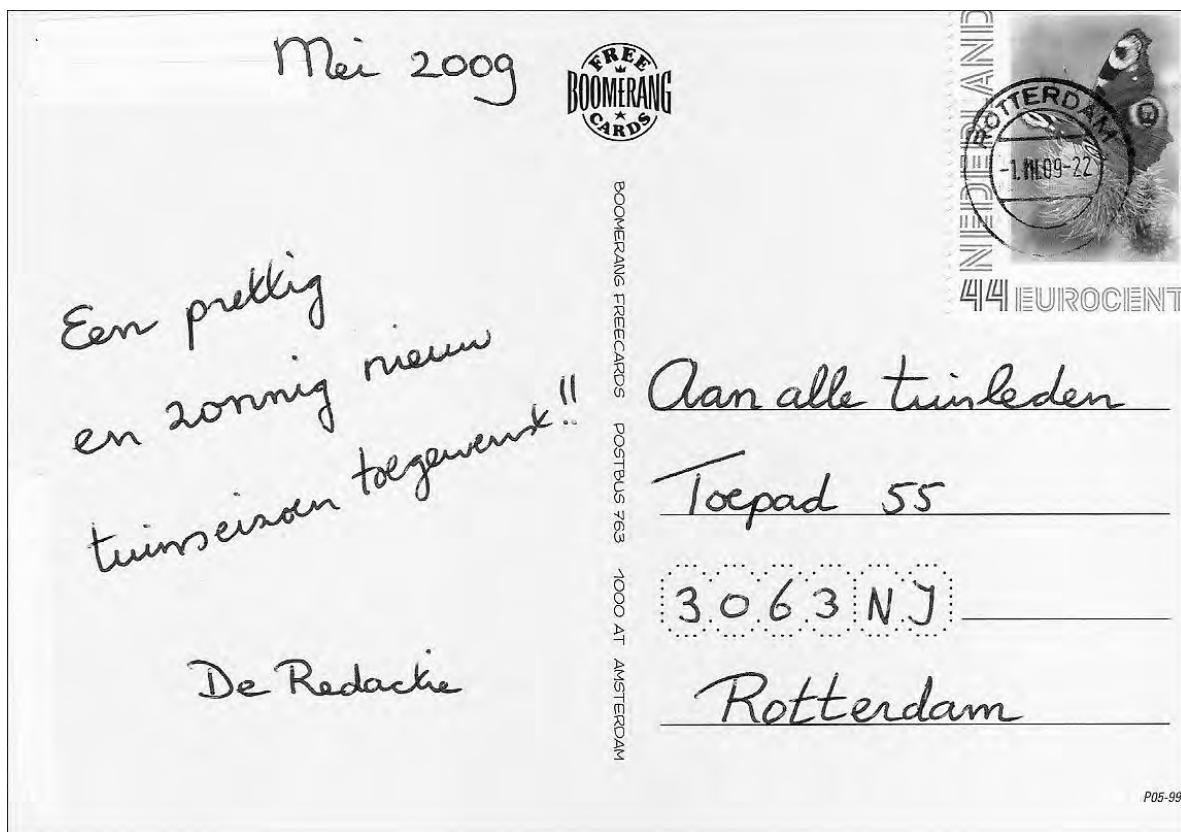 Mei 2009
FREE
BOOMERANG
CARDS
NEDERLAND
ROTTERDAM
44 EUROCENT
Een prettig
en zonnig nieuw
tuinseizoen toegewenst!!
De Redactie
BOOMERANG FREECARDS POSTBUS 763 1000 AT AMSTERDAM
Aan alle tuinleden
Toepad 55
3063 NJ
Rotterdam
P05-99